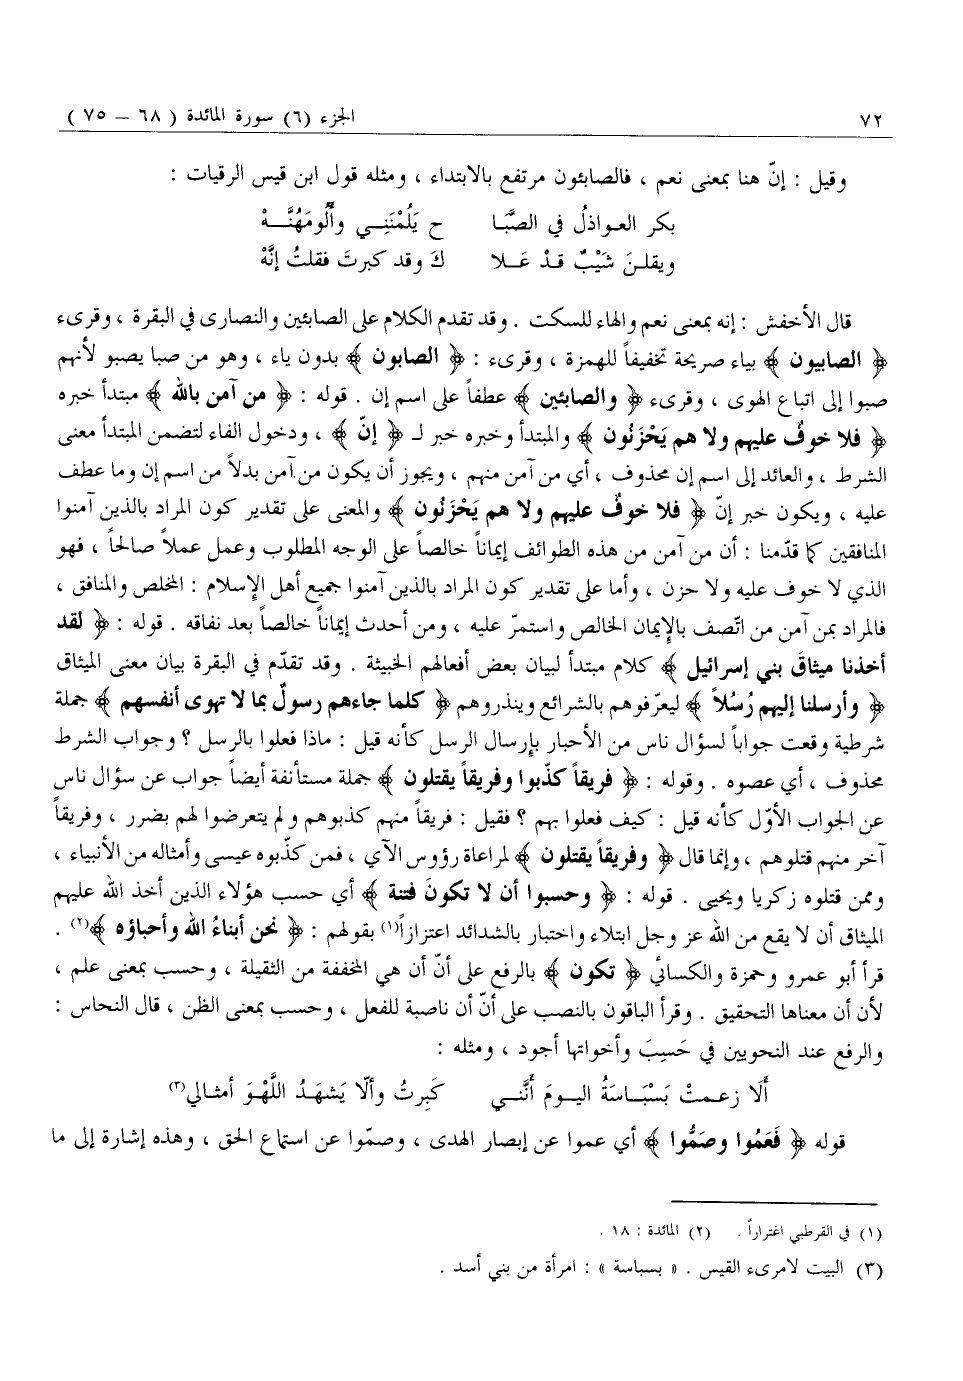 ٧٢ الجزء (٦) سورة المائدة ( ٦٨ – ٧٥ )
وقيل : إنّ هنا بمعنى نعم ، فالصابئون مرتفع بالابتداء ، ومثله قول ابن قيس الرقيات :
بكر العـواذلُ في الصَّبَـا ح يَلُمْنَنِـي وأَلُومَهُنَّـهْ
ويقلـنَ شَيْبٌ قـدْ عَـلا كَ وقد كبرتَ فقلتُ إنَّهْ
قال الأخفش : إنه بمعنى نعم والهاء للسكت . وقد تقدم الكلام على الصابئين والنصارى في البقرة ، وقرىء
﴿ الصابيون ﴾ بياء صريحة تخفيفاً للهمزة ، وقرىء : ﴿ الصابون ﴾ بدون ياء ، وهو من صبا يصبو لأنهم
صبوا إلى اتباع الهوى ، وقرىء ﴿ والصابئين ﴾ عطفاً على اسم إن . قوله : ﴿ من آمن بالله ﴾ مبتدأ خبره
﴿ فلا خوفٌ عليهم ولا هم يَحْزَنُون ﴾ والمبتدأ وخبره خبر لـ ﴿ إنّ ﴾ ، ودخول الفاء لتضمن المبتدأ معنى
الشرط ، والعائد إلى اسم إن محذوف ، أي من آمن منهم ، ويجوز أن يكون من آمن بدلاً من اسم إن وما عطف
عليه ، ويكون خبر إنّ ﴿ فلا خوفٌ عليهم ولا هم يَحْزَنُون ﴾ والمعنى على تقدير كون المراد بالذين آمنوا
المنافقين كما قدّمنا : أن من آمن من هذه الطوائف إيماناً خالصاً على الوجه المطلوب وعمل عملاً صالحاً ، فهو
الذي لا خوف عليه ولا حزن ، وأما على تقدير كون المراد بالذين آمنوا جميع أهل الإسلام : المخلص والمنافق ،
فالمراد بمن آمن من اتّصف بالإيمان الخالص واستمرّ عليه ، ومن أحدث إيماناً خالصاً بعد نفاقه . قوله : ﴿ لقد
أخذنا ميثاقَ بني إسرائيل ﴾ كلام مبتدأ لبيان بعض أفعالهم الخبيثة . وقد تقدّم في البقرة بيان معنى الميثاق
﴿ وأرسلنا إليهم رُسُلاً ﴾ ليعرّفوهم بالشرائع وينذروهم ﴿ كلما جاءهم رسولٌ بما لا تهوى أنفسهم ﴾ جملة
شرطية وقعت جواباً لسؤال ناس من الأحبار بإرسال الرسل كأنه قيل : ماذا فعلوا بالرسل ؟ وجواب الشرط
محذوف ، أي عصوه . وقوله : ﴿ فريقاً كذّبوا وفريقاً يقتلون ﴾ جملة مستأنفة أيضاً جواب عن سؤال ناس
عن الجواب الأوّل كأنه قيل : كيف فعلوا بهم ؟ فقيل : فريقاً منهم كذبوهم ولم يتعرضوا لهم بضرر ، وفريقاً
آخر منهم قتلوهم ، وإنما قال ﴿ وفريقاً يقتلون ﴾ لمراعاة رؤوس الآي ، فمن كذّبوه عيسى وأمثاله من الأنبياء ،
وممن قتلوه زكريا ويحيى . قوله : ﴿ وحسبوا أن لا تكونَ فتنة ﴾ أي حسب هؤلاء الذين أخذ الله عليهم
الميثاق أن لا يقع من الله عز وجل ابتلاء واختبار بالشدائد اعتزازاً(١) بقولهم : ﴿ نحن أبناءُ الله وأحباؤه ﴾(٢) .
قرأ أبو عمرو وحمزة والكسائي ﴿ تكون ﴾ بالرفع على أنّ أن هي المخففة من الثقيلة ، وحسب بمعنى علم ،
لأن أن معناها التحقيق . وقرأ الباقون بالنصب على أنّ أن ناصبة للفعل ، وحسب بمعنى الظن ، قال النحاس :
والرفع عند النحويين في حَسِبَ وأخواتها أجود ، ومثله :
أَلَا زعـمتْ بَسْبَـاسةُ اليـومَ أَنَّنـي كَبِرتُ وألّا يَشهَـدُ اللَّهْوَ أمثـالي(٣)
قوله ﴿ فَعَمُوا وصَمُّوا ﴾ أي عموا عن إبصار الهدى ، وصمّوا عن استماع الحق ، وهذه إشارة إلى ما
(١) في القرطبي اغتراراً . (٢) المائدة : ١٨ .
(٣) البيت لامرىء القيس . « بسباسة » : امرأة من بني أسد .